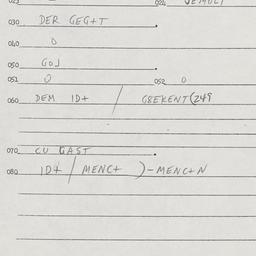 030 DER GEG+T
040 0
050 GOJ
051 0 052 0
060 DEM ID+ / GBEKENT(249
070 CU GAST
080 ID+ / MENC+ )-MENC+N